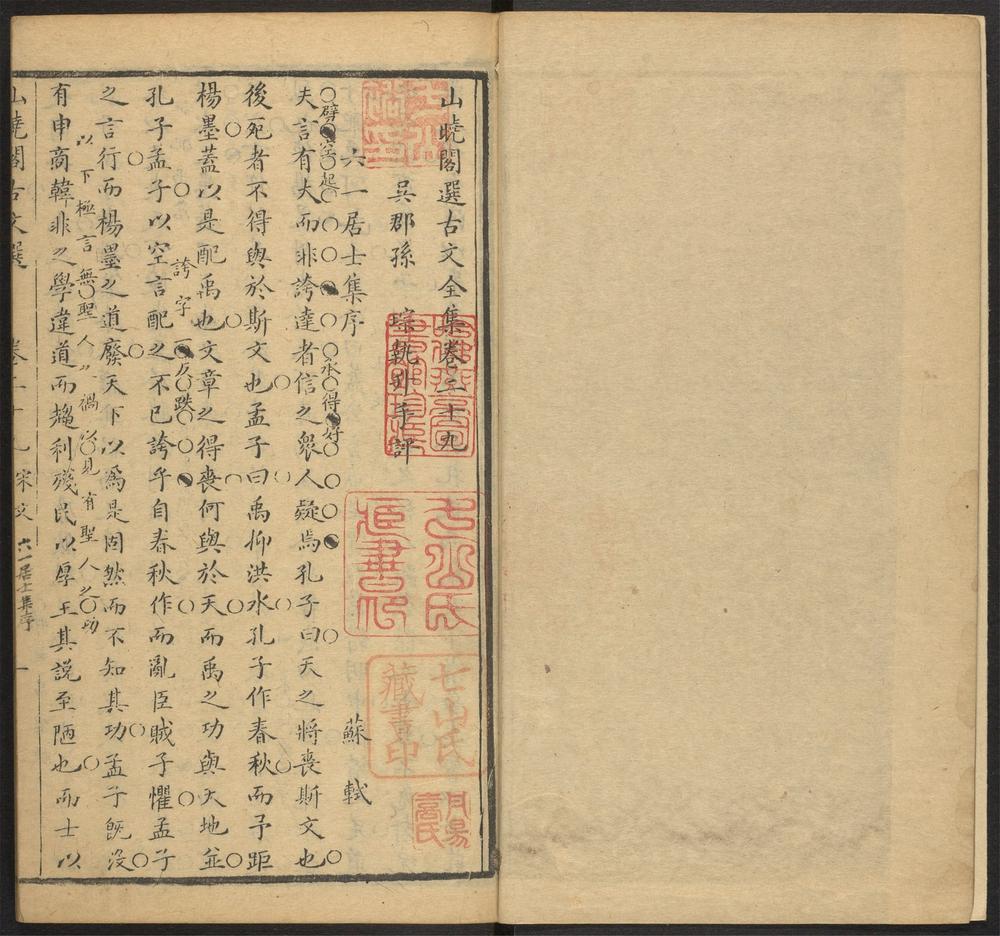 山曉閣選古文全集卷二十九
吳郡孫　琮執升手評
六一居士集序　蘇軾
劈空起
承得好
夫言有大而非誇達者信之衆人疑焉孔子曰天之將喪斯文也
後死者不得與於斯文也孟子曰禹抑洪水孔子作春秋而予距
楊墨蓋以是配禹也文章之得喪何與於天而禹之功與天地並
誇字一反跌
孔子孟子以空言配之不已誇乎自春秋作而亂臣賊子懼孟子
之言行而楊墨之道廢天下以爲是固然而不知其功孟子旣沒
以下極言無聖人之禍以見有聖人之功
有申商韓非之學違道而趨利殘民以厚主其說至陋也而士以
山曉閣古文選　卷二十九　宋文　六一居士集序　一
七山氏藏書印